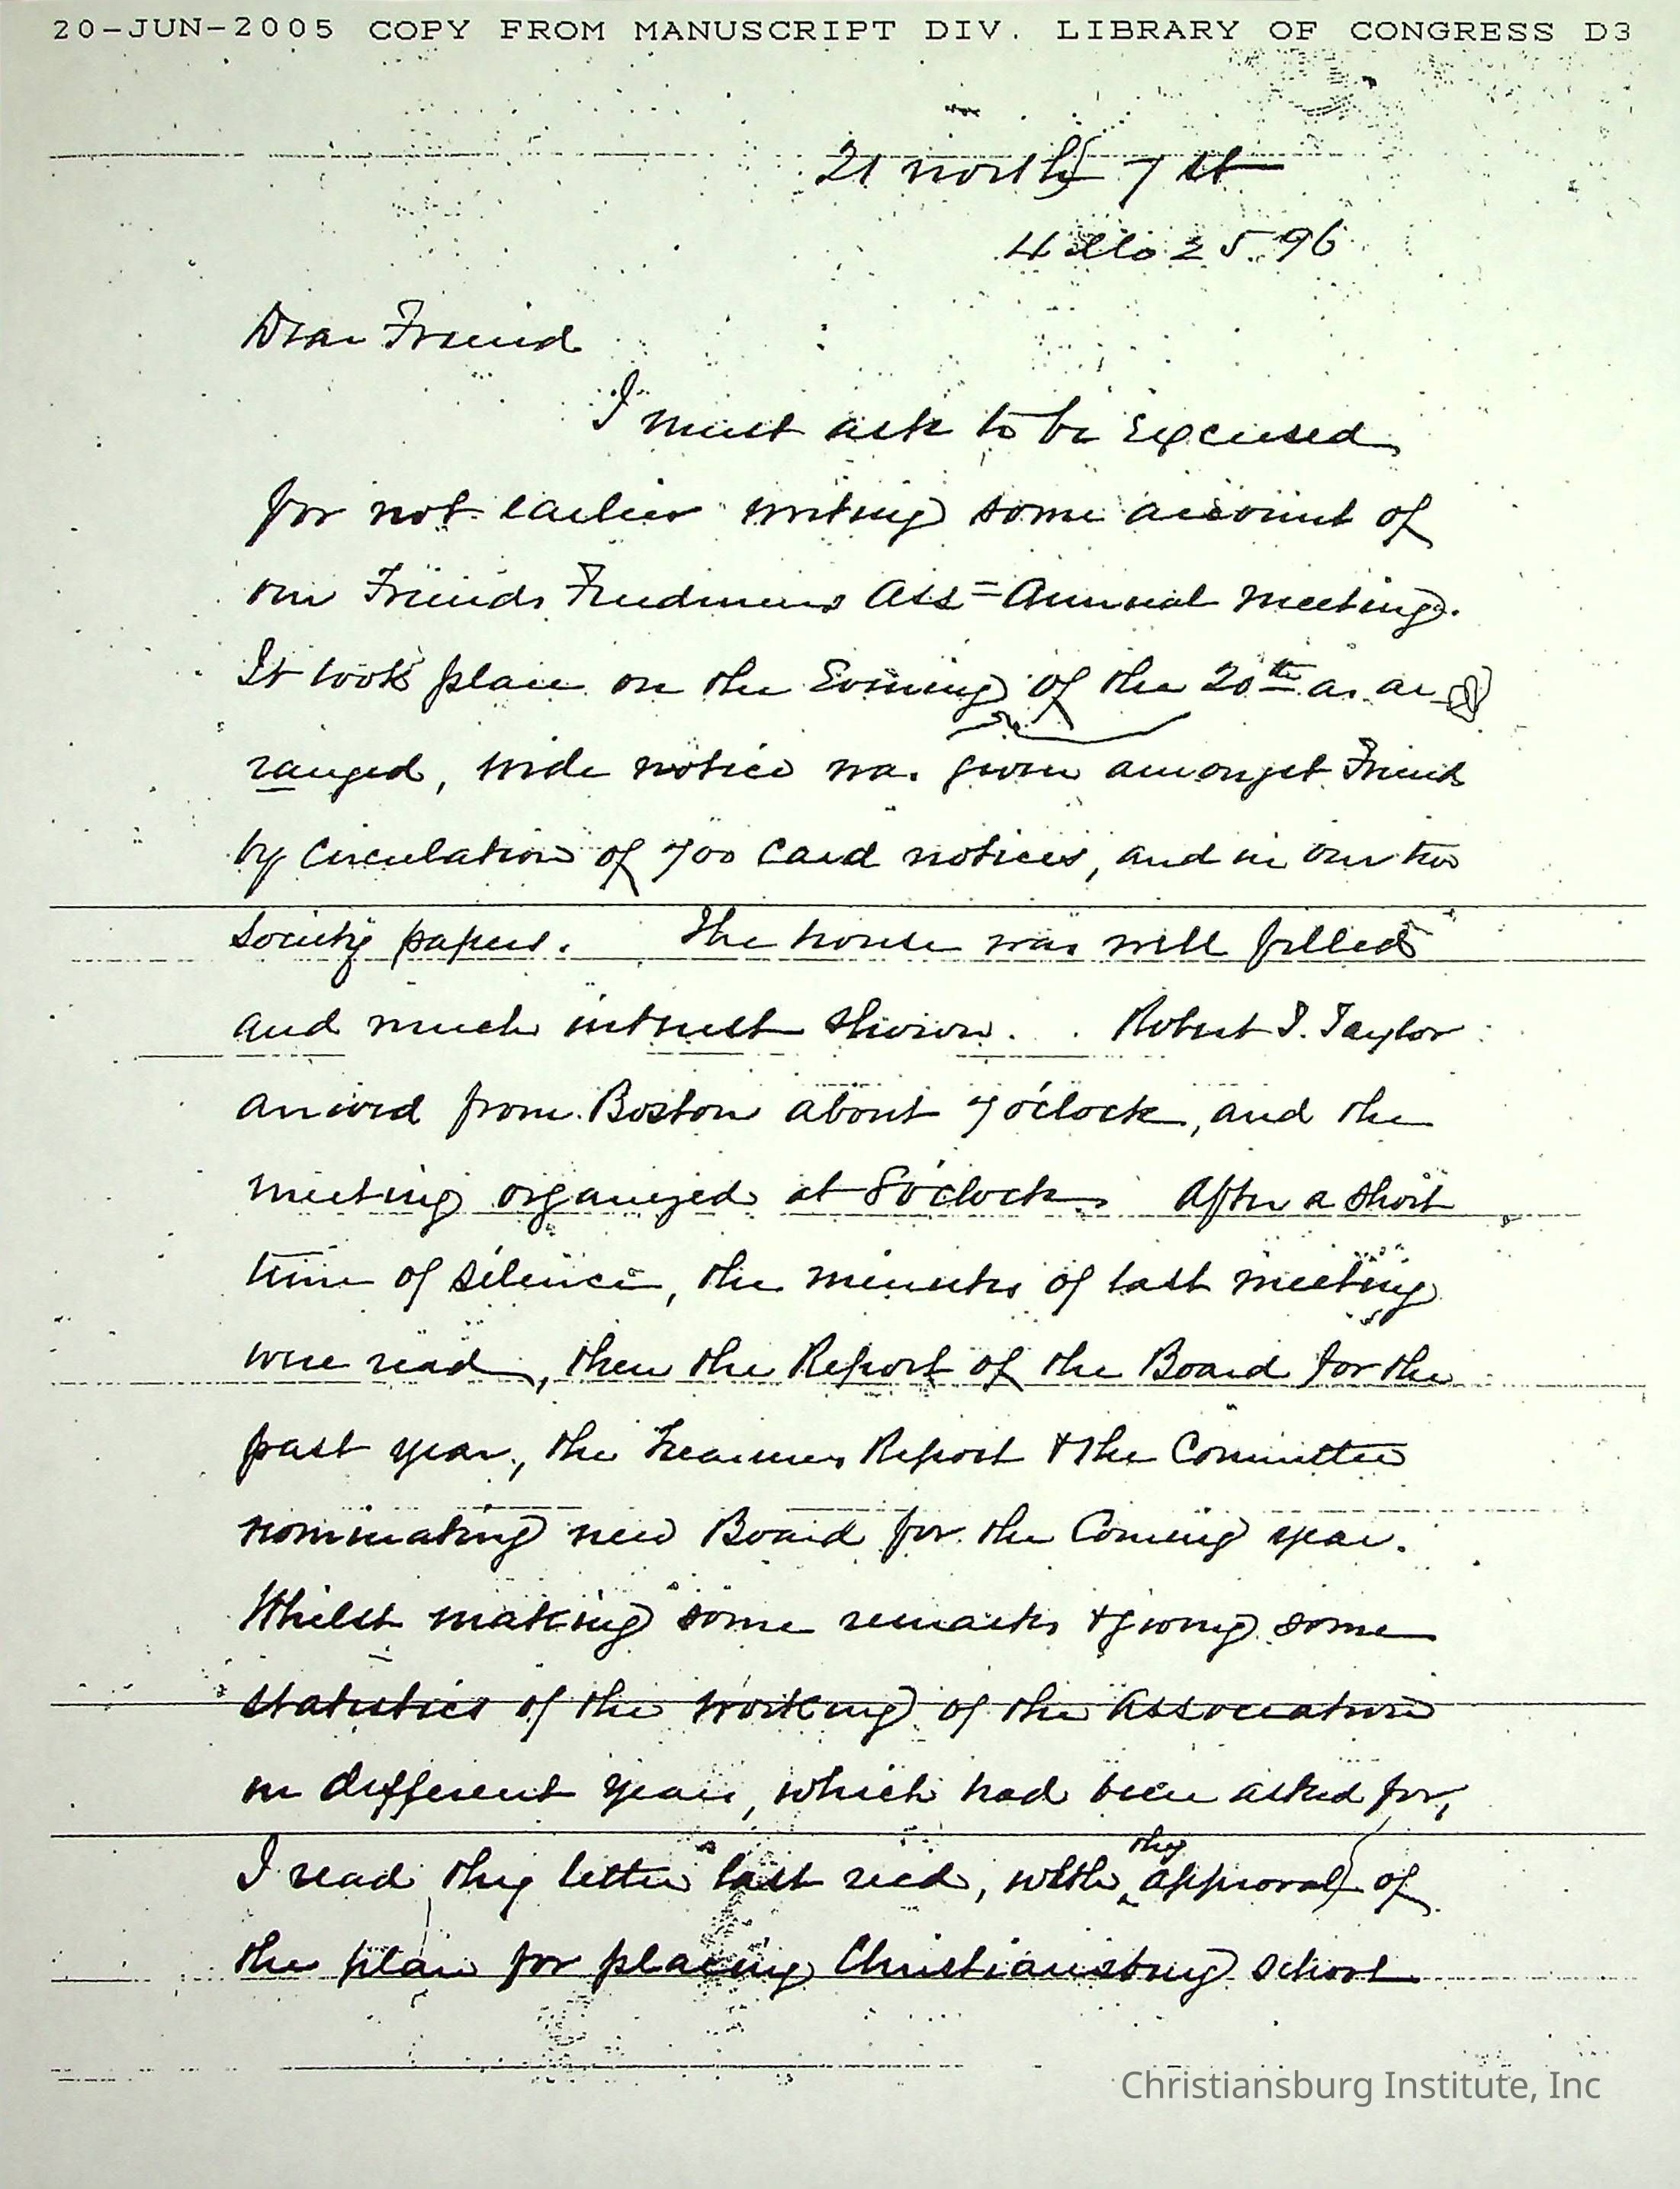 20-JUN-2005 COPY FROM MANUSCRIPT DIV. LIBRARY OF CONGRESS D3
21 north 7 st
4 Mo 25. 96
Dear Friend
I must ask to be Excused
for not earlier writing some account of
our Friends Freedmens Ass= Annual meeting.
It took place on the Evening of the 20th as ar
ranged, wide notice was given amongst Friends
by Circulation of 700 Card notices, and in our two
Society papers. The house was well filled
and much interest shown. Robert S. Taylor
arrived from Boston about 7 o'clock, and the
meeting organized at 8 o'clock. After a short
time of silence, the minutes of last meeting
were read, then the Report of the Board for the
past year, the Treasurers Report & the Committee
nominating new Board for the Coming year.
Whilst making some remarks & giving some
statistics of the working of the Association
in different years, which had been asked for,
I read thy letter last recd, with thy approval of
the plan for placing Christiansburg school
Christiansburg Institute, Inc